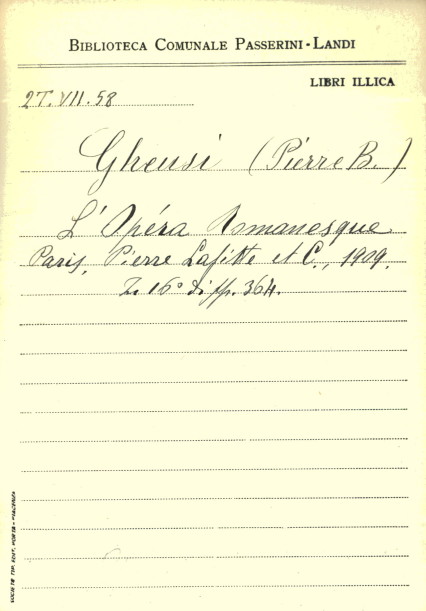 BIBLIOTECA COMUNALE PASSERINI-LANDI
LIBRI ILLICA
2T.VII.58
Gheusi (Pierre B.)
L'Opéra Romanesque
Paris, Pierre Lafitte et C., 1909.
In 16° di pp. 364.